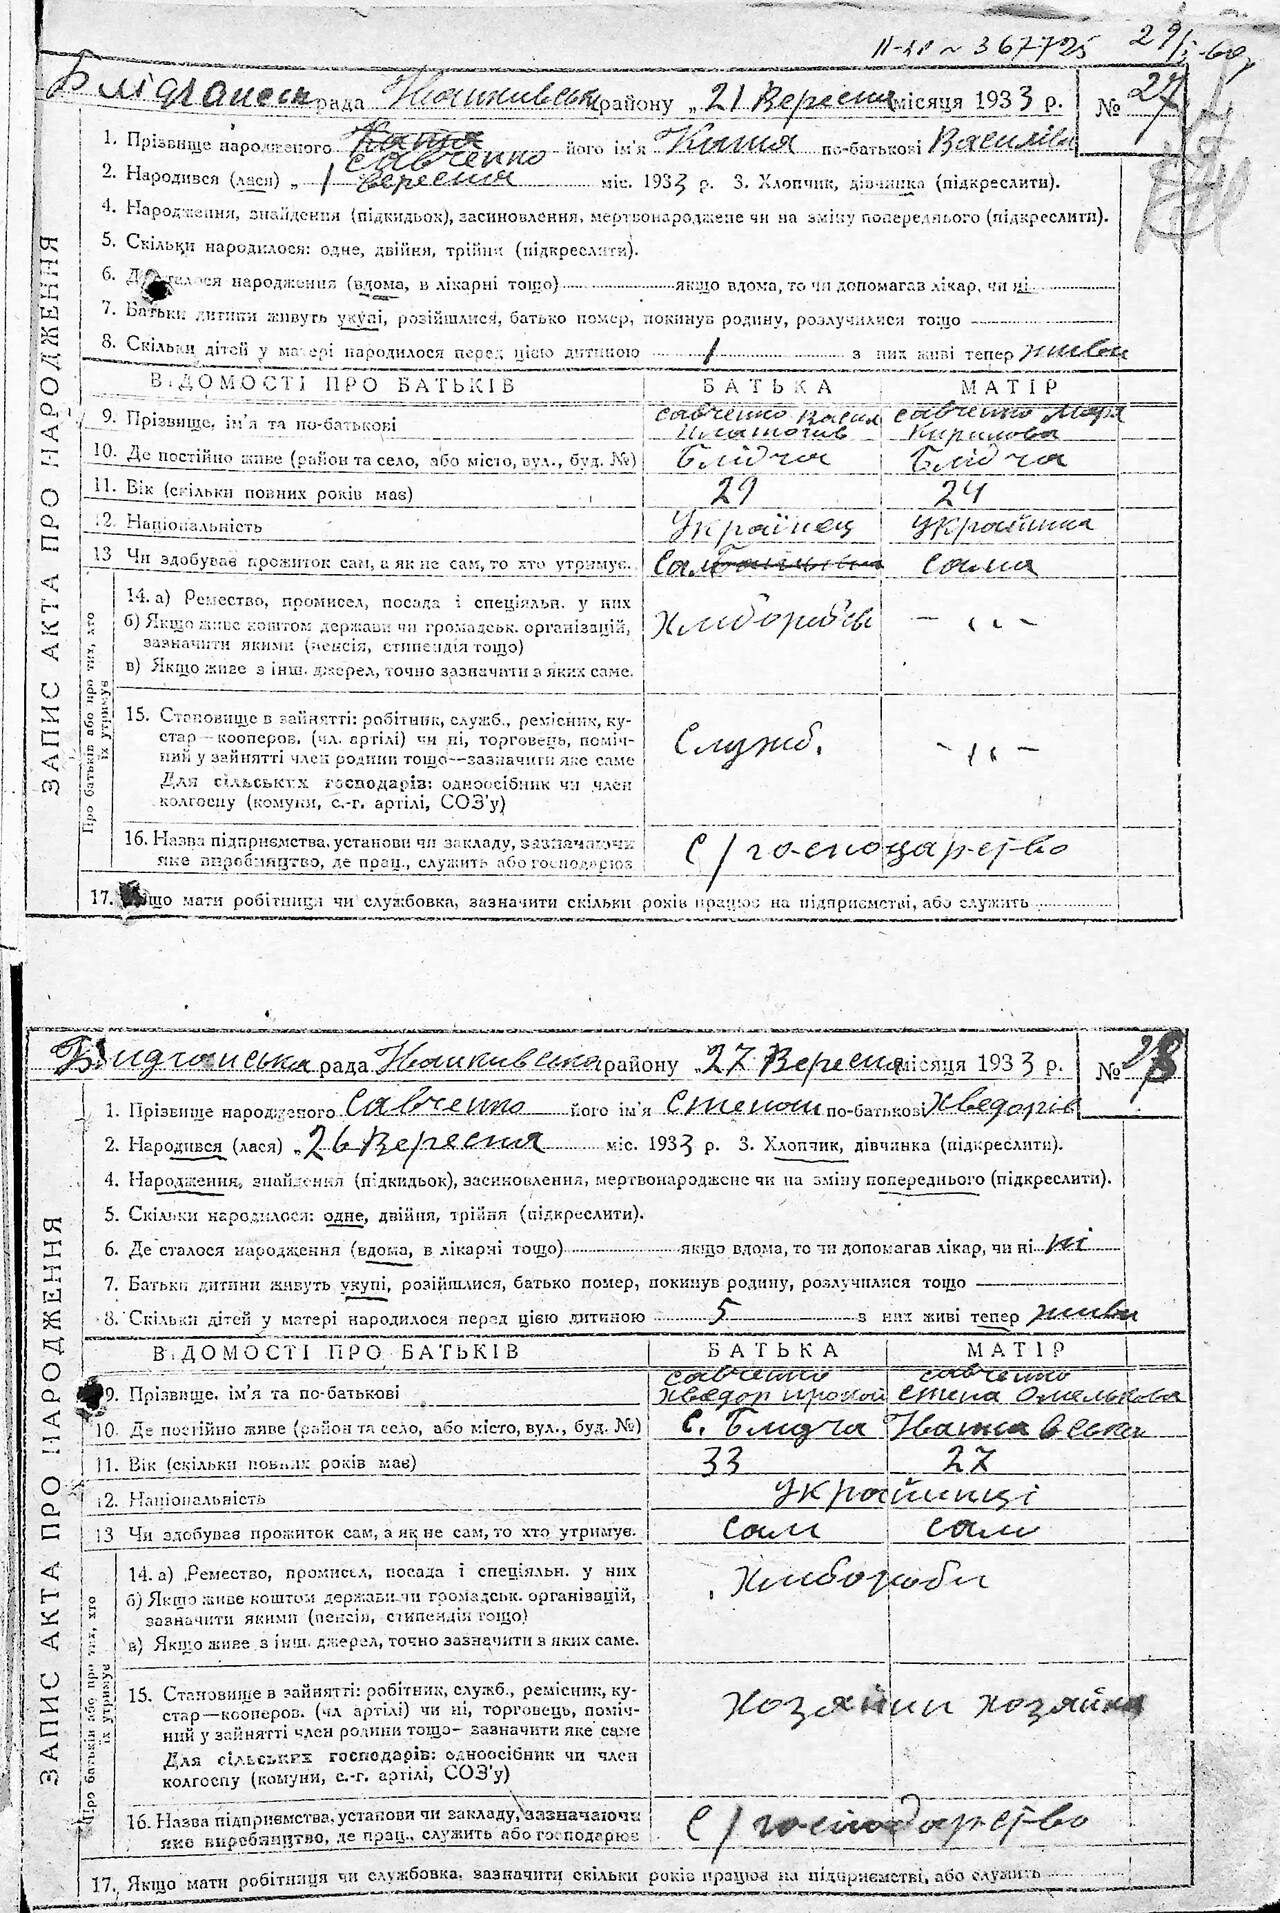 ІІ-ЯР № 367725 29/І-60р
Блідчанська рада Іванківський району „21 Вересня місяця 1933 р. № 27
ЗАПИС АКТА ПРО НАРОДЖЕННЯ
1. Прізвище народженого Катя Савченко його ім'я Катя по-батькові Василівн
2. Народився (лася) „ 1 вересня міс. 1933 р. 3. Хлопчик, дівчинка (підкреслити).
4. Народження, знайдення (підкидьок), засиновлення, мертвонароджене чи на зміну попереднього (підкреслити).
5. Скільки народилося: одне, двійня, трійня (підкреслити).
6. Де сталося народження (вдома, в лікарні тощо) якщо вдома, то чи допомагав лікар, чи ні
7. Батьки дитини живуть укупі, розійшлися, батько помер, покинув родину, розлучилися тощо
8. Скільки дітей у матері народилося перед цією дитиною 1 з них живі тепер живи
ВІДОМОСТІ ПРО БАТЬКІВ БАТЬКА МАТІР
9. Прізвище, ім'я та по-батькові Савченко Васил Савченко Мара
Кирилова
10. Де постійно живе (район та село, або місто, вул., буд. №) Блідча Блідча
11. Вік (скільки повних років має) 29 24
12. Національність Українец Українка
13 Чи здобував прожиток сам, а як не сам, то хто утримує. Сам сама
Про батьків або про тих, хто їх утримує
14. а) Ремество, промисел, посада і спеціяльн. у них
б) Якщо живе коштом держави чи громадськ. організацій, Хлиборобсв – „ –
зазначити якими (пенсія, стипендія тощо)
в) Якщо живе з інш. джерел, точно зазначити з яких саме.
15. Становище в зайнятті: робітник, служб., ремісник, ку-
стар—кооперов. (чл. артілі) чи ні, торговець, поміч- Служб. – „ –
ний у зайнятті член родини тощо—зазначити яке саме
Для сільських господарів: одноосібник чи член
колгоспу (комуни, с.-г. артілі, СОЗ'у)
16. Назва підприємства, установи чи закладу, зазначаючи С/господарство
яке виробництво, де прац., служить або господарює
17. Якщо мати робітниця чи службовка, зазначити скільки років працює на підприємстві, або служить
Блидчанська рада Іванкивська району „27 Вересня місяця 1933 р. № 28
ЗАПИС АКТА ПРО НАРОДЖЕННЯ
1. Прізвище народженого Савченко його ім'я Степан по-батькові Хведорів
2. Народився (лася) „26 Вересня міс. 1933 р. 3. Хлопчик, дівчинка (підкреслити).
4. Народження, знайдення (підкидьок), засиновлення, мертвонароджене чи на зміну попереднього (підкреслити).
5. Скільки народилося: одне, двійня, трійня (підкреслити).
6. Де сталося народження (вдома, в лікарні тощо) якщо вдома, то чи допомагав лікар, чи ні ні
7. Батьки дитини живуть укупі, розійшлися, батько помер, покинув родину, розлучилися тощо
8. Скільки дітей у матері народилося перед цією дитиною 5 з них живі тепер живи
ВІДОМОСТІ ПРО БАТЬКІВ БАТЬКА МАТІР
Савченко Савченко
9. Прізвище, ім'я та по-батькові Хведор Прокоп Степа Омелькова
10. Де постійно живе (район та село, або місто, вул., буд. №) С. Блидча
11. Вік (скільки повних років має) 33 27
12. Національність Українці
13 Чи здобував прожиток сам, а як не сам, то хто утримує. Сам сам
Про батьків або про тих, хто їх утримує
14. а) Ремество, промисел, посада і спеціяльн. у них Хлибороби
б) Якщо живе коштом держави чи громадськ. організацій,
зазначити якими (пенсія, стипендія тощо)
в) Якщо живе з інш. джерел, точно зазначити з яких саме.
15. Становище в зайнятті: робітник, служб., ремісник, ку- Хозяйин хозяйка
стар—кооперов. (чл артілі) чи ні, торговець, поміч-
ний у зайнятті член родини тощо—зазначити яке саме
Для сільських господарів: одноосібник чи член
колгоспу (комуни, с.-г. артілі, СОЗ'у)
16. Назва підприємства, установи чи закладу, зазначаючи С/господарство
яке виробництво, де прац., служить або господарює
17. Якщо мати робітниця чи службовка, зазначити скільки років працює на підприємстві, або служить